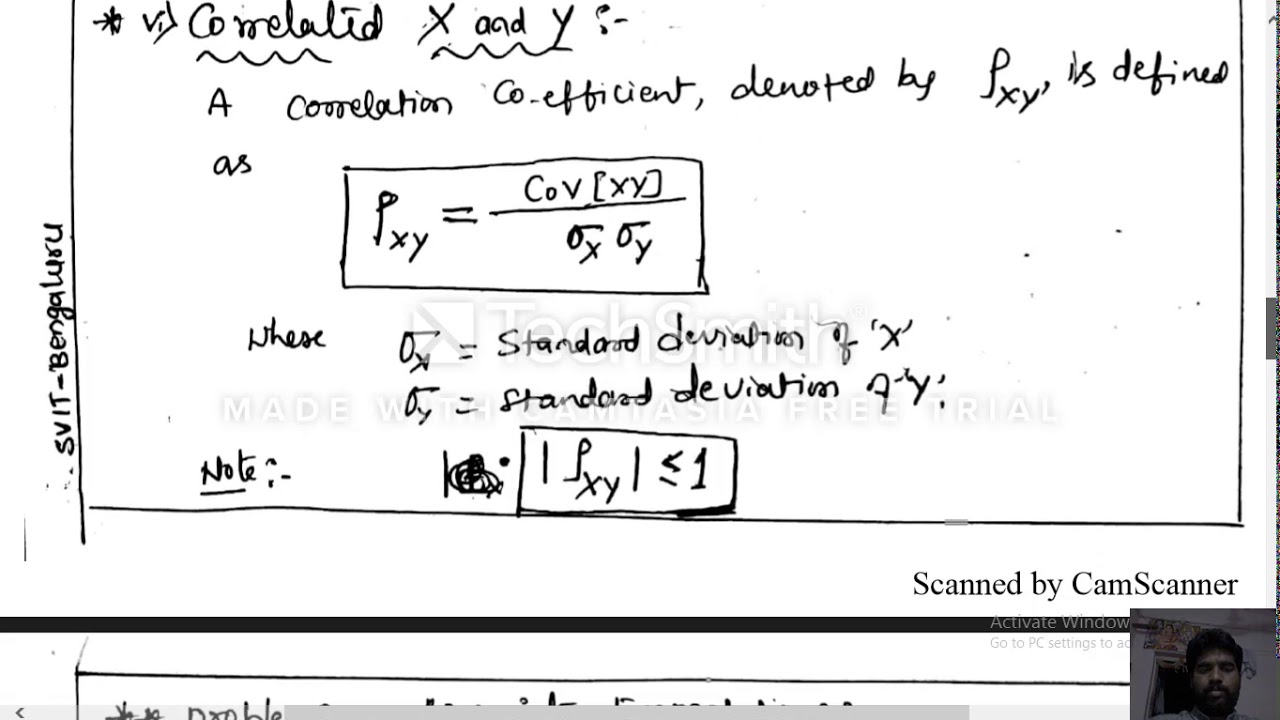 * vi) Correlated X and Y :-
A correlation co-efficient, denoted by ρxy, is defined
as
ρxy = Cov [XY] / σx σy
where σx = standard deviation of 'X'
σy = standard deviation of 'Y'.
TechSmith®
MADE WITH CAMTASIA FREE TRIAL
Note :- |ρxy| ≤ 1
SVIT-Bengaluru
Scanned by CamScanner
Activate Window
Go to PC settings to ac